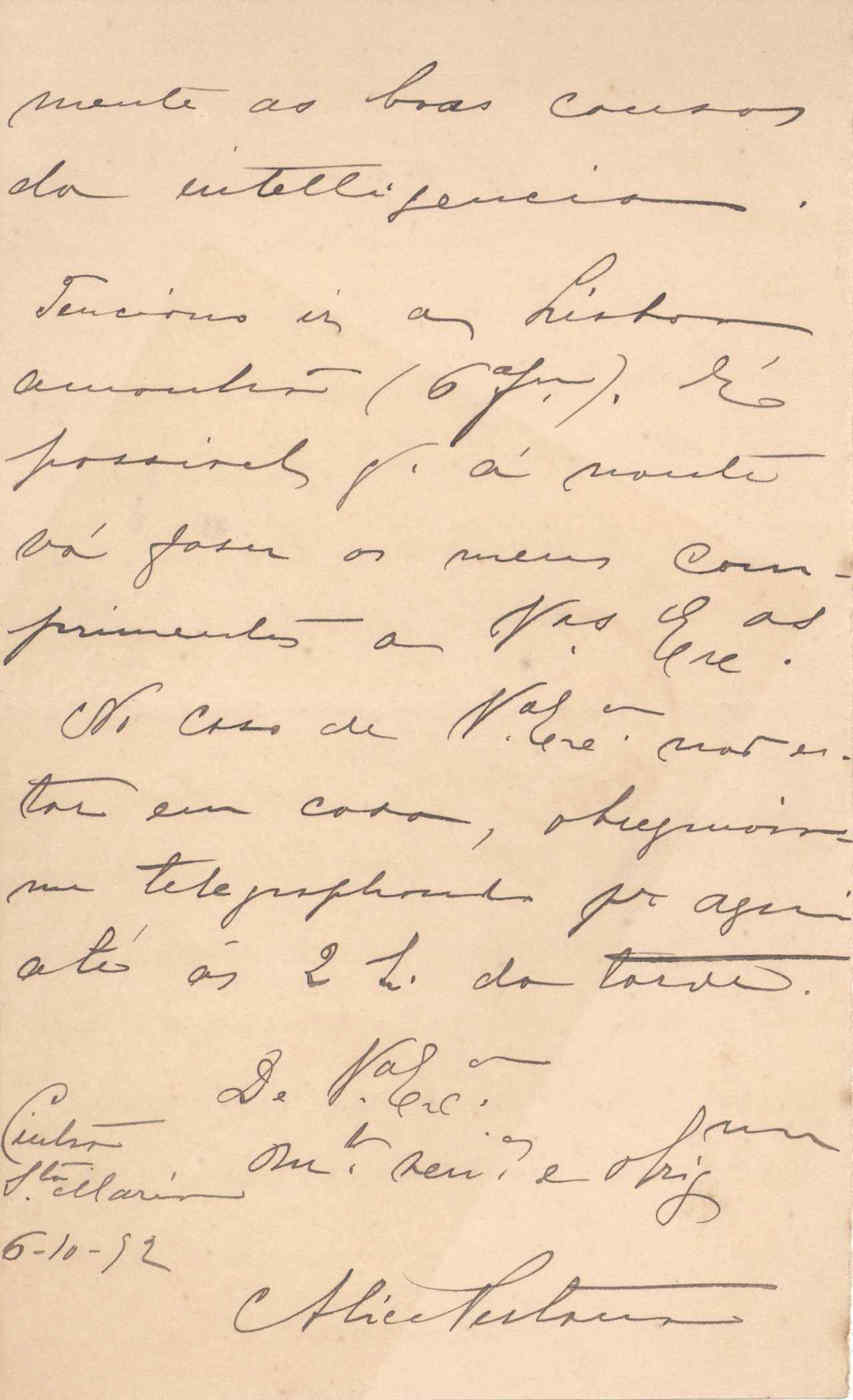 mente as boas causas
da intelligencia.
Tenciono ir a Lisboa
amanhã (6ª fra.). É
possivel q. á noute
vá fazer os meus com-
primentos a Vas. Excas.
No caso de V.ª Exc.ª não es-
tar em casa, obsequeia-
me telegraphando pr aqui
até ás 2 h. da tarde.
De V.ª Exc.ª
Cintra
Sta. Maria
6-10-92
mt. ven. e obrig
Alice Pestana